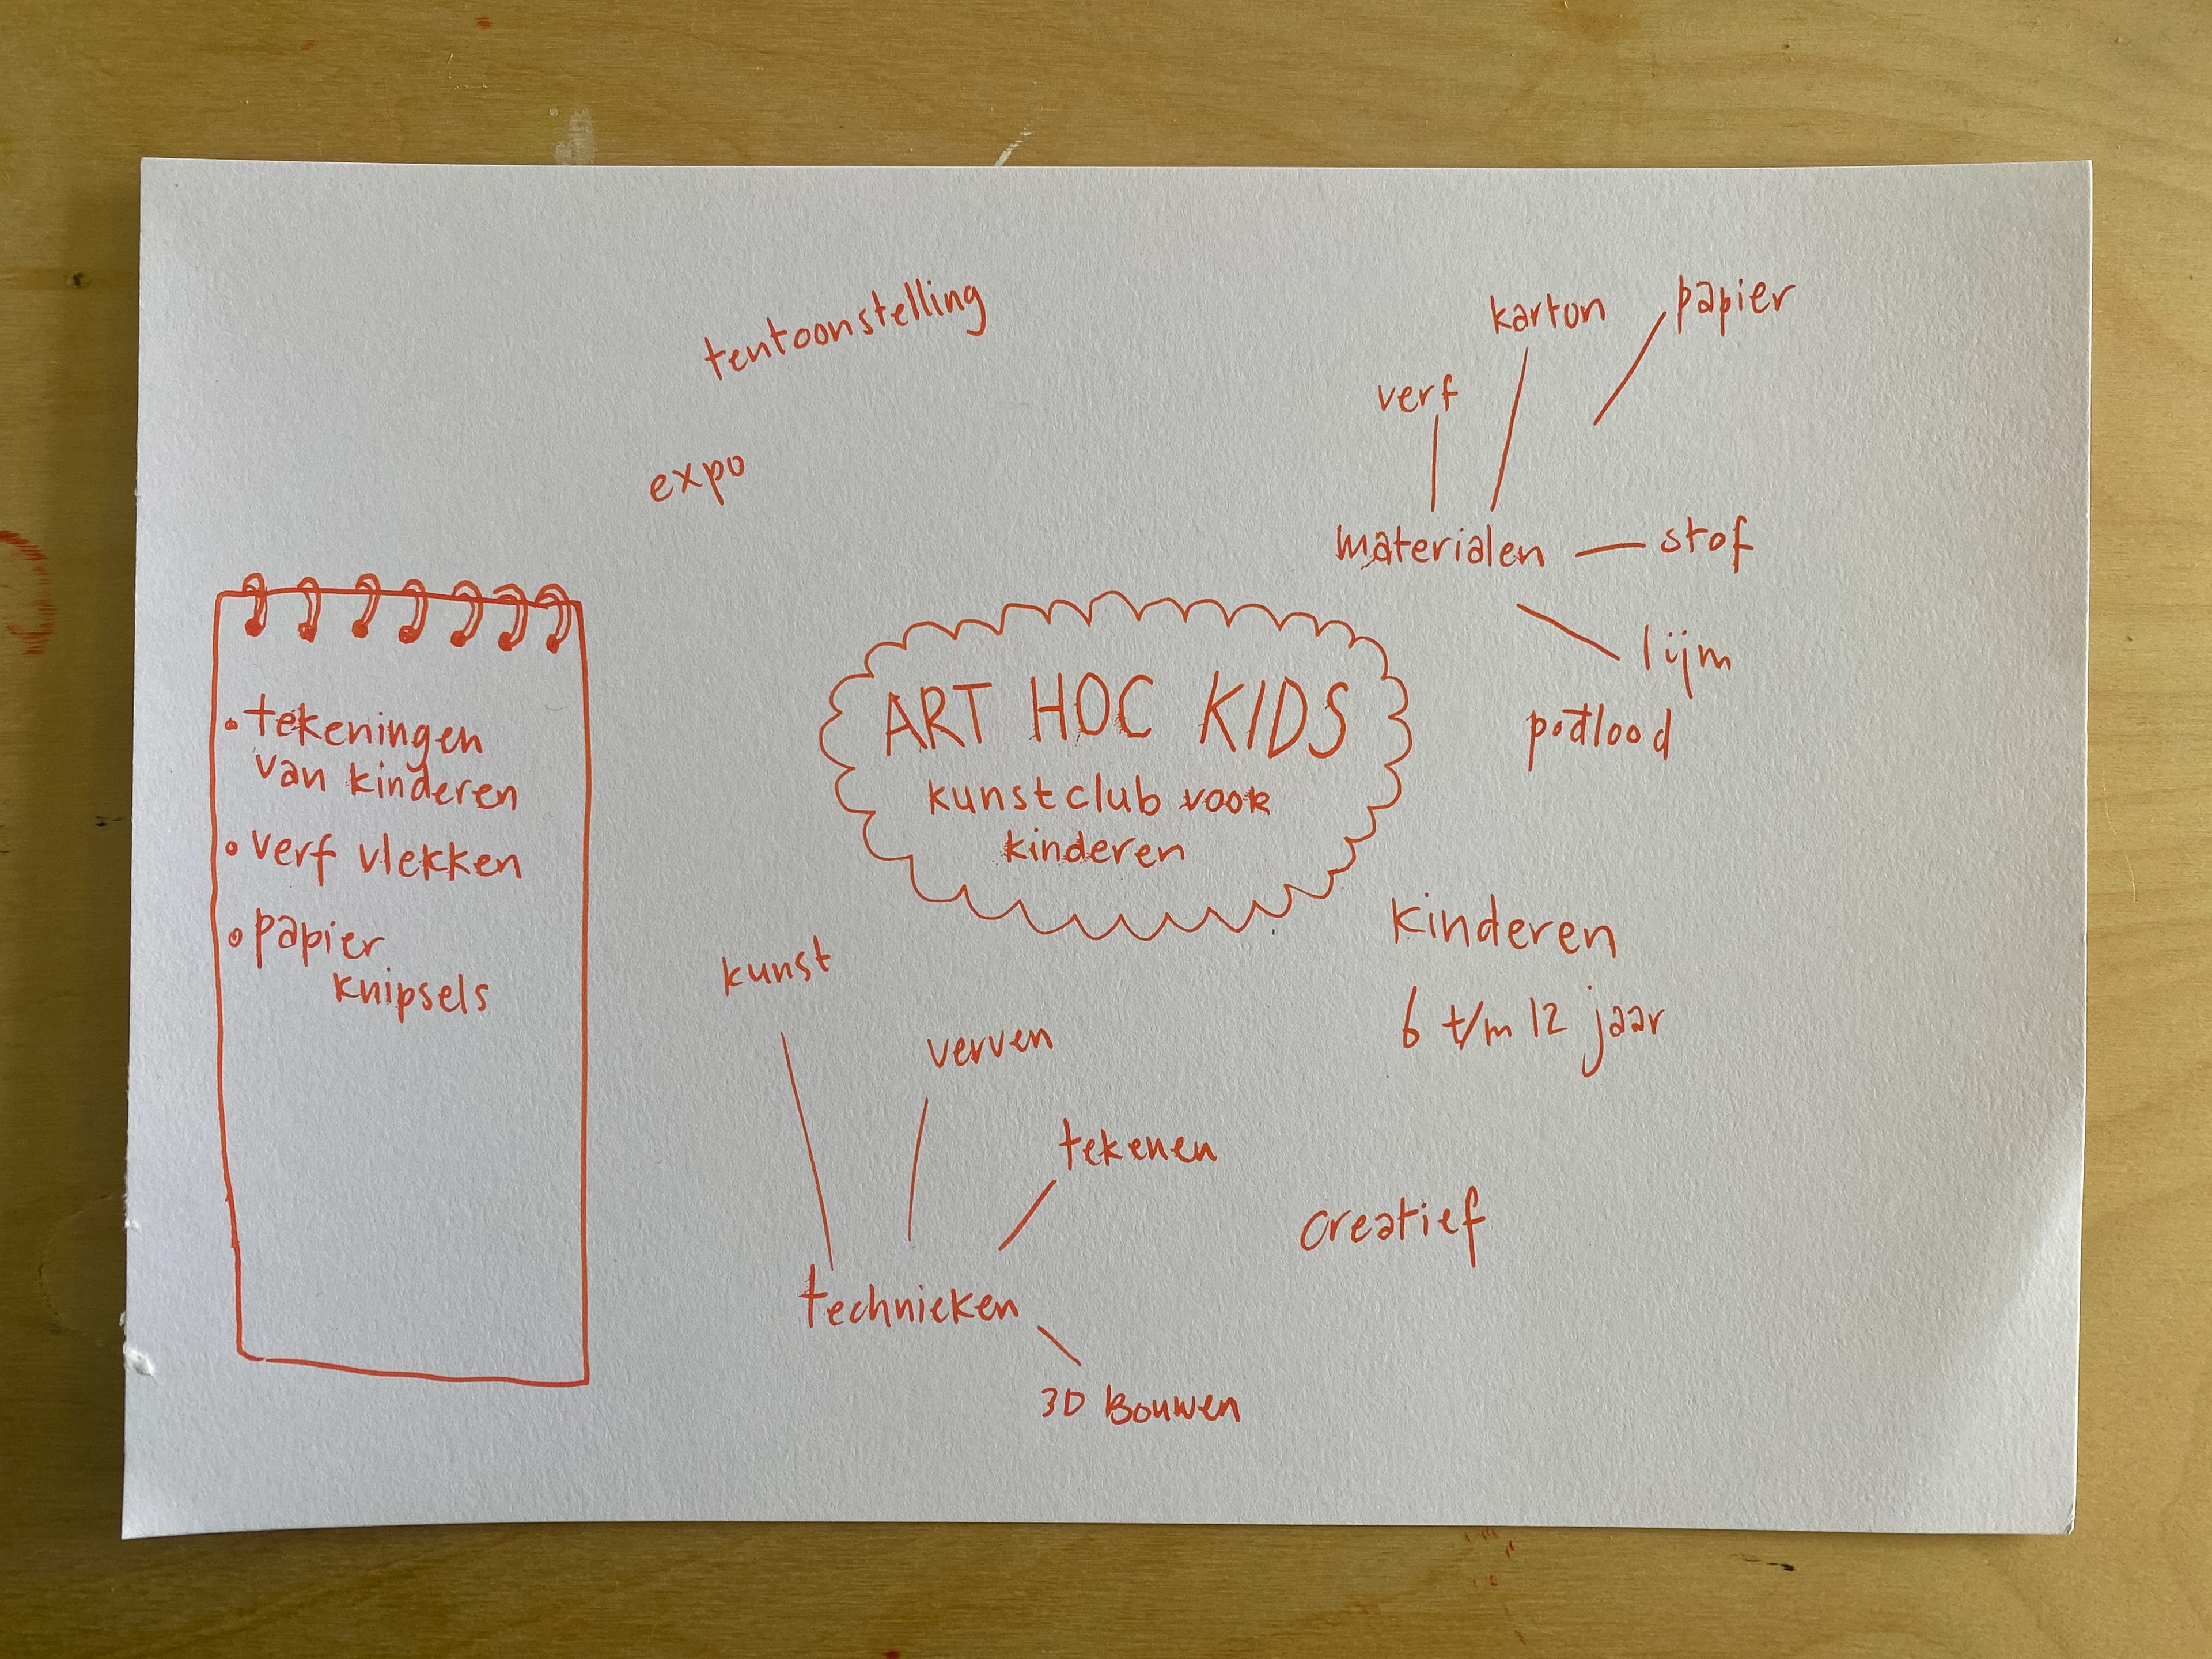 tentoonstelling
expo
karton
papier
verf
materialen
stof
lijm
potlood
ART HOC KIDS
kunstclub voor
kinderen
• tekeningen
van kinderen
• verf vlekken
• papier
knipsels
kinderen
6 t/m 12 jaar
kunst
verven
tekenen
technieken
3D Bouwen
creatief